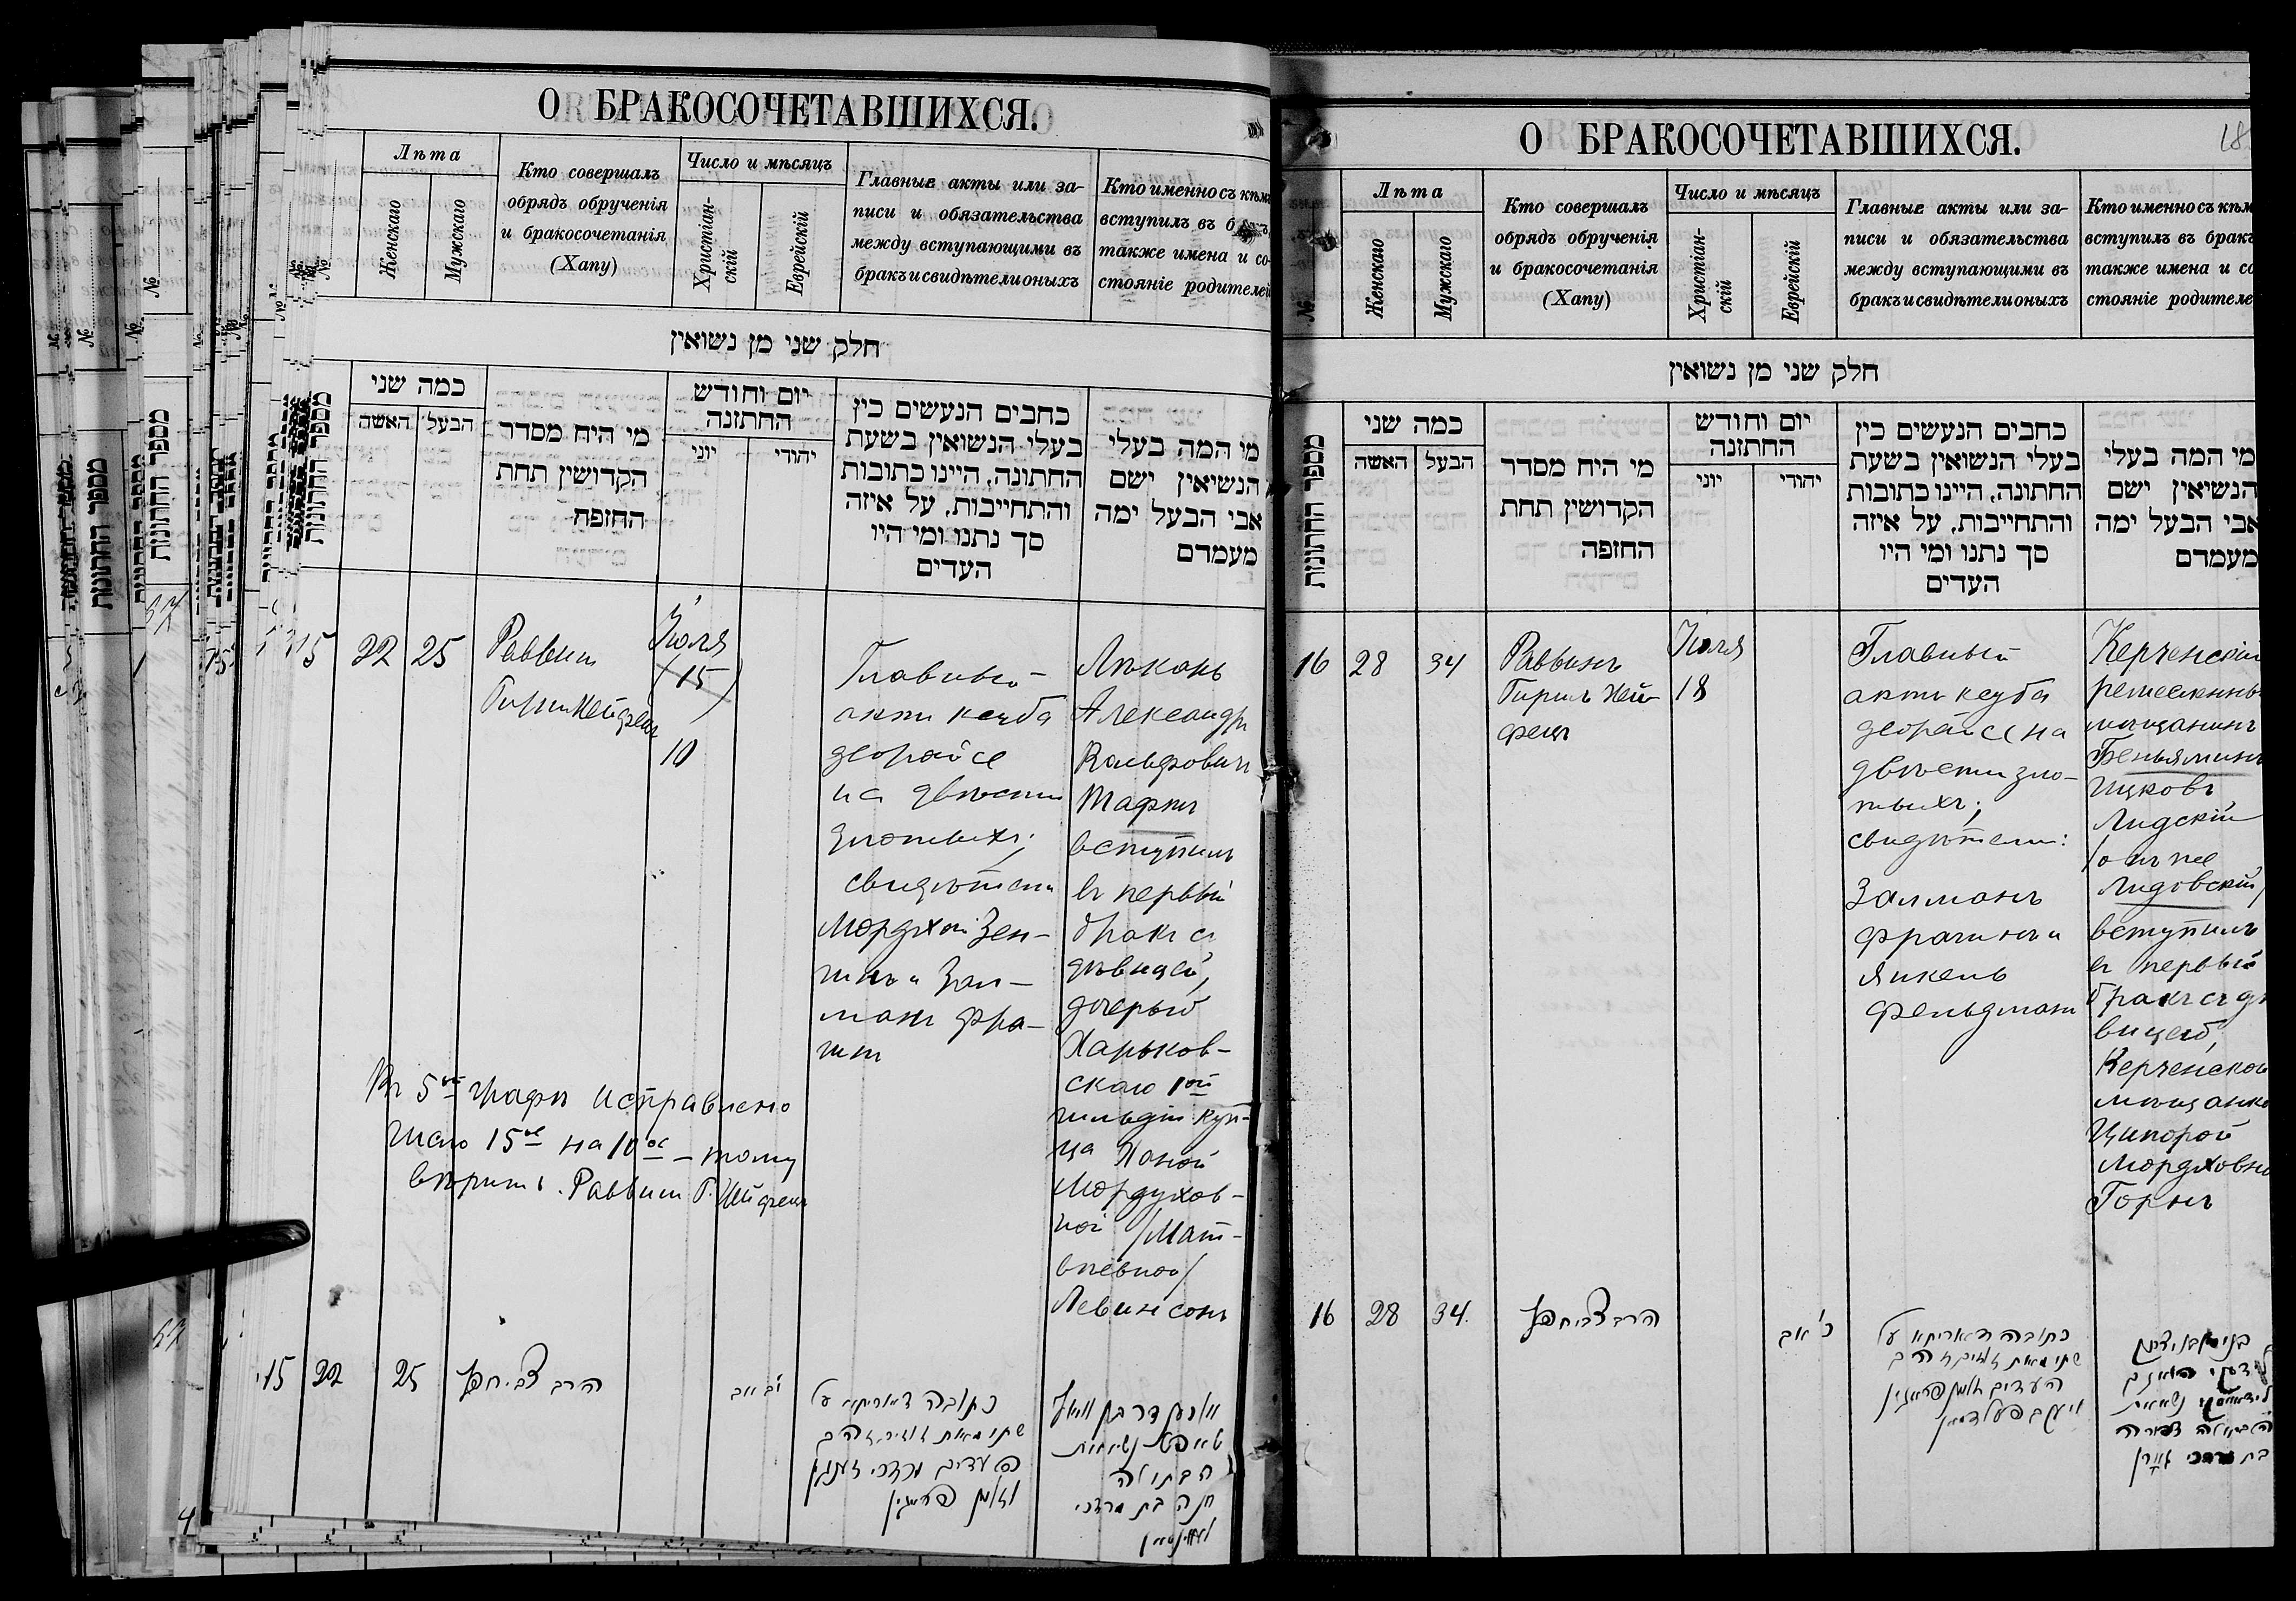 О БРАКОСОЧЕТАВШИХСЯ.
№
Лѣта
Женскаго
Мужскаго
Кто совершалъ
обрядъ обрученія
и бракосочетанія
(Хапу)
Число и мѣсяцъ
Христіан-
скій
Еврейскій
Главные акты или за-
писи и обязательства
между вступающими въ
бракъ и свидѣтели оныхъ
Кто именно съ кѣмъ
вступилъ въ
также имена и со-
стояніе родителей
חלק שני מן נשואין
מספר החתונות
כמה שני
האשה
הבעל
מי היה מסדר
הקדושין תחת
החופה
יום וחודש
החתונה
יוני
יהודי
כתבים הנעשים בין
בעלי הנשואין בשעת
החתונה, היינו כתובות
והתחייבות, על איזה
סך נתנו ומי היו
העדים
מי המה בעלי
הנשואין ושם
אבי הבעל ומה
מעמדם
15
22
25
Раввинъ
Гиршъ Хейфецъ
Іюля
(15)
10
Главный
актъ ксуба
деорайсе
на двѣсти
злотыхъ;
свидѣтели
Мордхай Зен-
гинъ и Зал-
манъ Фра-
гинъ
Лѣкарь
Александръ
Вольфовичъ
Тафтъ
вступилъ
въ первый
бракъ съ
дѣвицей,
дочерью
Харьков-
скаго 1ой
гильдіи куп-
ца Ханой
Мордухов-
ной /Мат-
вѣевной/
Левинсонъ
Въ 5ой графѣ исправлено
число 15ое на 10ое – тому
вѣрить. Раввинъ Г. Хейфецъ
15
22
25
הרב צבי חפץ
י״ב אב
כתובה דאוריתא על
שתי מאות זוזים זהב
העדים מרדכי זענגין
וזלמן פראגין
טאפט נשא את
הבתולה
חנה בת מרדכי
לעווינסאן
О БРАКОСОЧЕТАВШИХСЯ.
18
№
Лѣта
Женскаго
Мужскаго
Кто совершалъ
обрядъ обрученія
и бракосочетанія
(Хапу)
Число и мѣсяцъ
Христіан-
скій
Еврейскій
Главные акты или за-
писи и обязательства
между вступающими въ
бракъ и свидѣтели оныхъ
Кто именно съ кѣм
вступилъ въ бракъ
также имена и со
стояніе родителе
חלק שני מן נשואין
מספר החתונות
כמה שני
האשה
הבעל
מי היה מסדר
הקדושין תחת
החופה
יום וחודש
החתונה
יוני
יהודי
כתבים הנעשים בין
בעלי הנשואין בשעת
החתונה, היינו כתובות
והתחייבות, על איזה
סך נתנו ומי היו
העדים
מי המה בעלי
הנשואין ושם
אבי הבעל ומה
מעמדם
16
28
34
Раввинъ
Гиршъ Хей-
фецъ
Іюля
18
Главный
актъ ксуба
деорайсе на
двѣсти зло-
тыхъ;
свидѣтели:
Залманъ
Фрагинъ и
Янкель
Фельдманъ
Керченскій
ремесленный
мѣщанинъ
Беньяминъ
Ицковъ
Лидскій
/онъ же
Лидовскій/
вступилъ
въ первый
бракъ съ дѣ
вицей,
Керченской
мѣщанко
Ципорой
Мордховно
Горнъ
16
28
34.
הרב צבי חפץ
כ׳ אב
כתובה דאוריתא על
שתי מאות זוזים זהב
העדים זלמן פראגין
ויעקב פעלדמאן
נשא את
הבתולה צפורה
בת מרדכי גורן